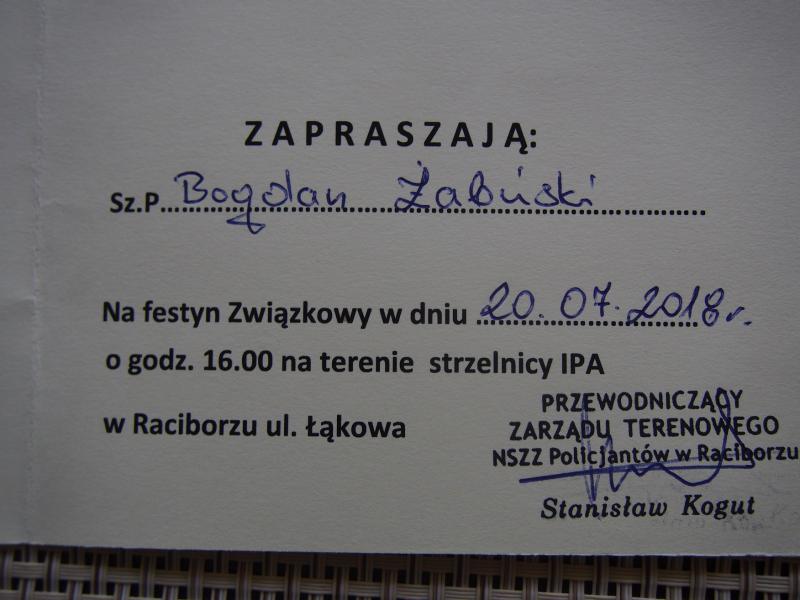 ZAPRASZAJĄ:
Sz.P. Bogdan Żabiński
Na festyn Związkowy w dniu 20.07.2018r.
o godz. 16.00 na terenie strzelnicy IPA
w Raciborzu ul. Łąkowa
PRZEWODNICZĄCY
ZARZĄDU TERENOWEGO
NSZZ Policjantów w Raciborzu
Stanisław Kogut